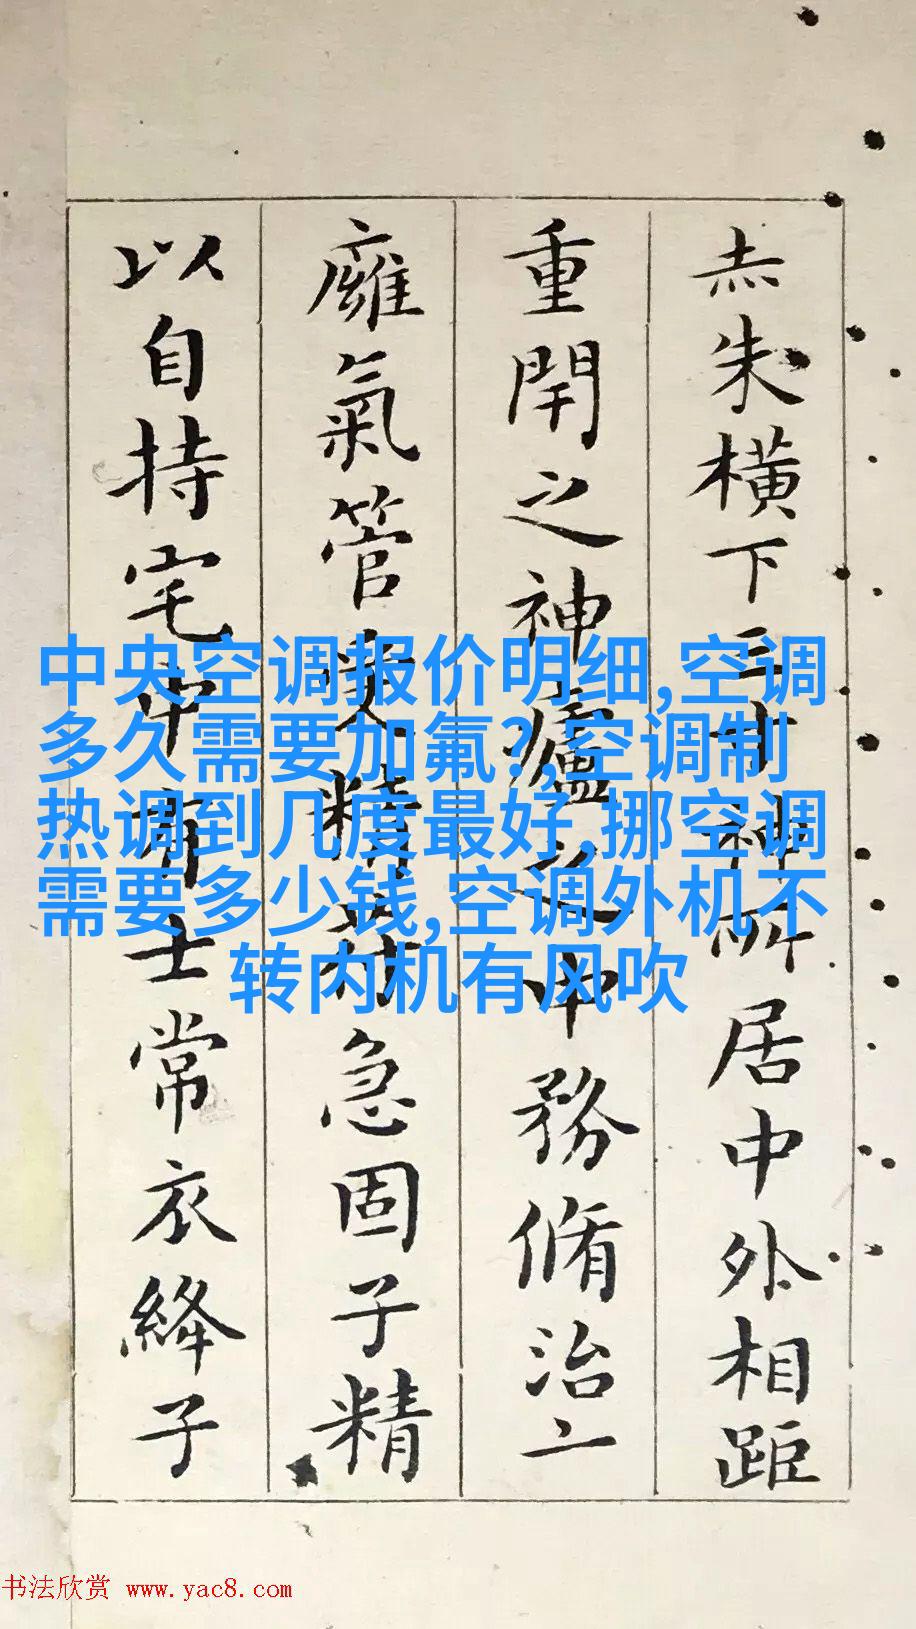 赤朱橫下三寸神所居中外相距
重閇之神廬之中務脩治亠
廱氣管受精苻急固子精
以自持宅中有士常衣絳子
中央空调报价明细,空调
多久需要加氟?,空调制
热调到几度最好,挪空调
需要多少钱,空调外机不
转内机有风吹
书法欣赏 www.yac8.com